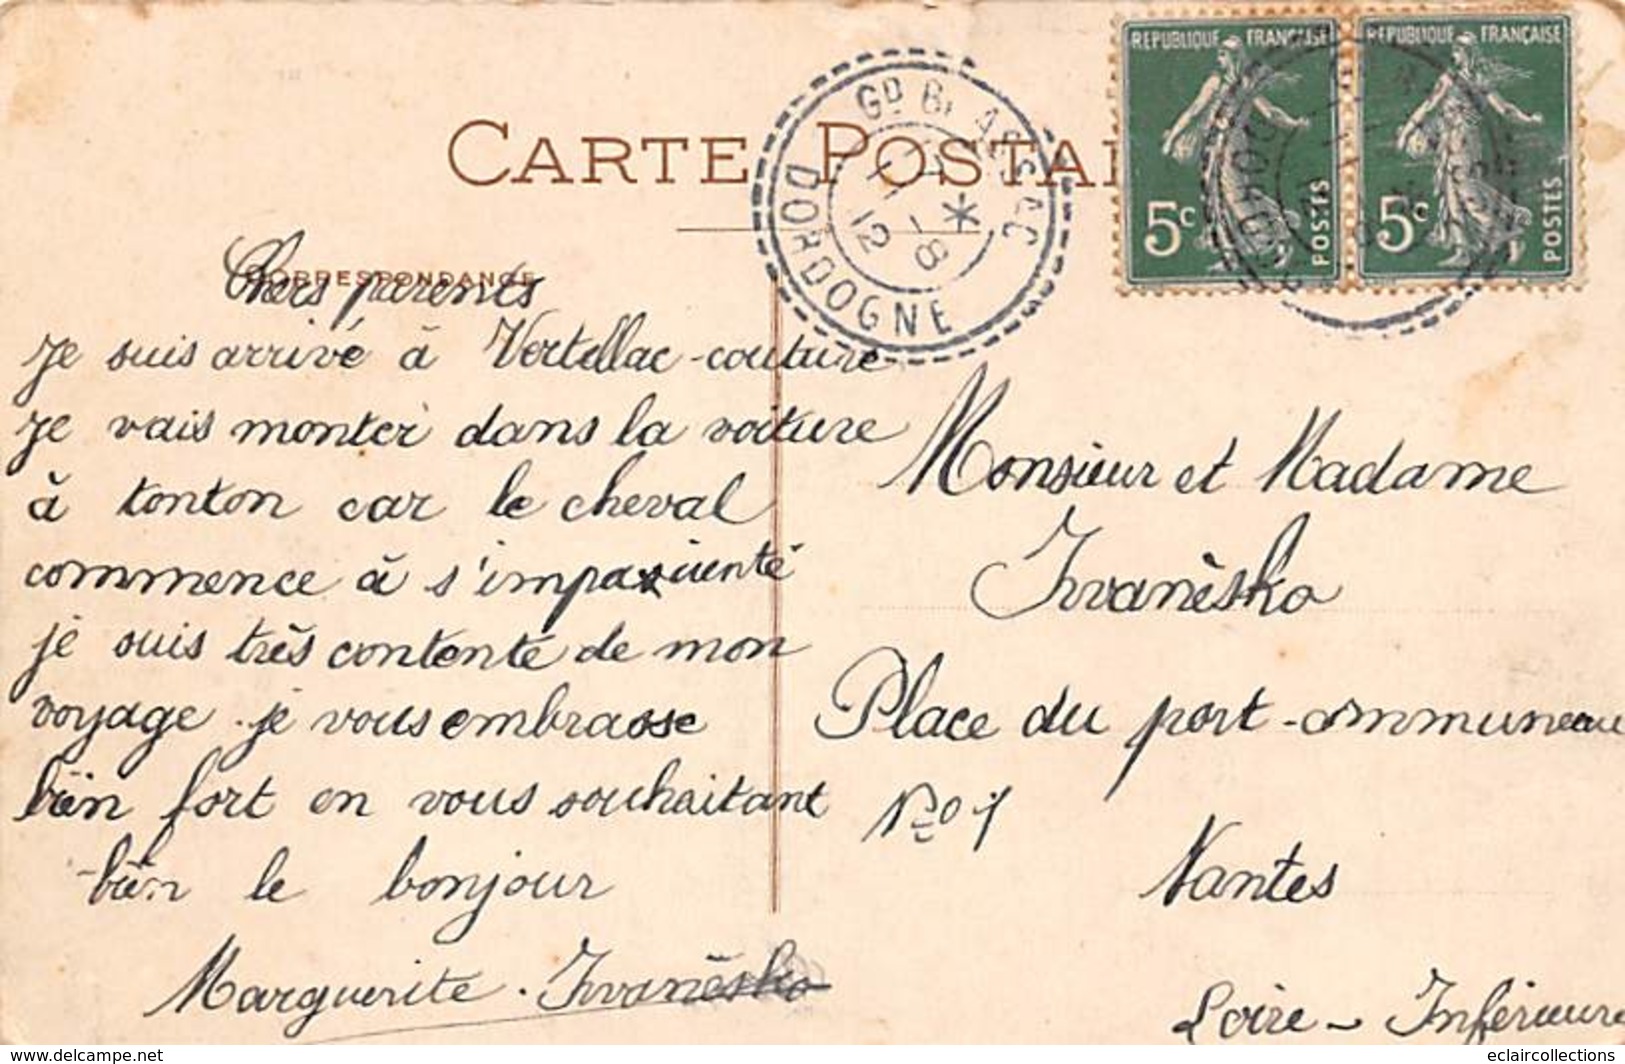 CARTE POSTALE
CORRESPONDANCE
RÉPUBLIQUE FRANÇAISE
5c POSTES
RÉPUBLIQUE FRANÇAISE
5c POSTES
GD BRASSAC
DORDOGNE
12 -8
Chers parents
Je suis arrivé à Vertellac-couture
je vais monter dans la voiture
à tonton car le cheval
commence à s'impacienté
je suis très contente de mon
voyage. je vous embrasse
bien fort en vous souhaitant
bien le bonjour
Marguerite. Ivvanèsko
Monsieur et Madame
Ivvanèsko
Place du port-communeau
No 7
Nantes
Loire-Inférieure
eclaircollections
© www.delcampe.net